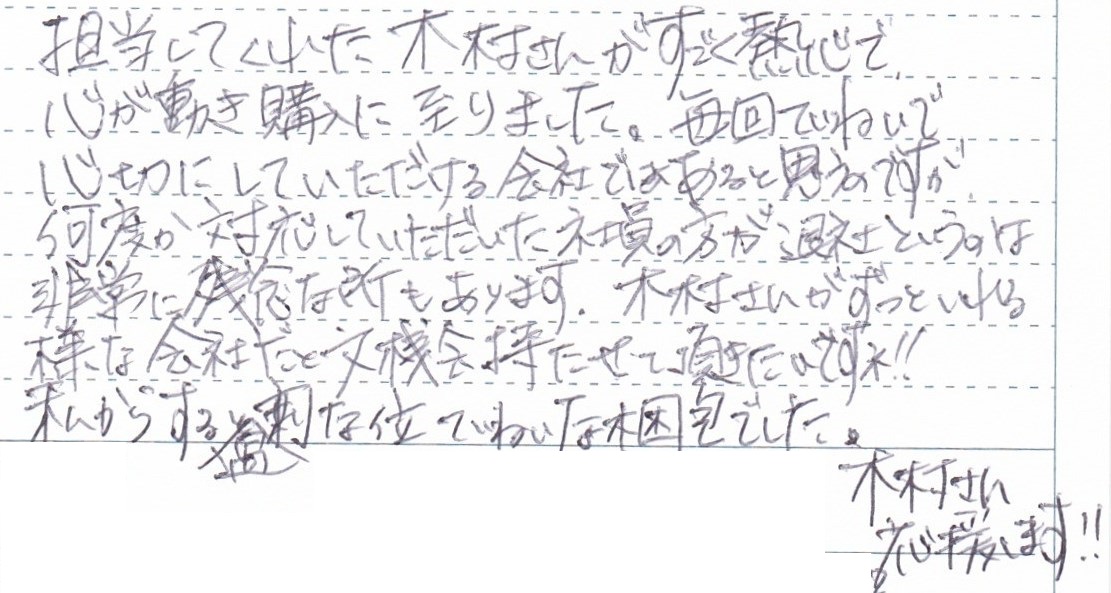 担当してくれた木村さんがすごく熱心で、
心が動き購入に至りました。毎回ていねいで
心切にしていただける会社ではあると思うのですが、
何度か対応していただいた社員の方が退社というのは
非常に残念な所もあります。木村さんがずっといれる
様な会社だと又機会持たせて頂きたいですネ!!
私からすると過剰な位ていねいな梱包でした。
木村さん
応援します!!